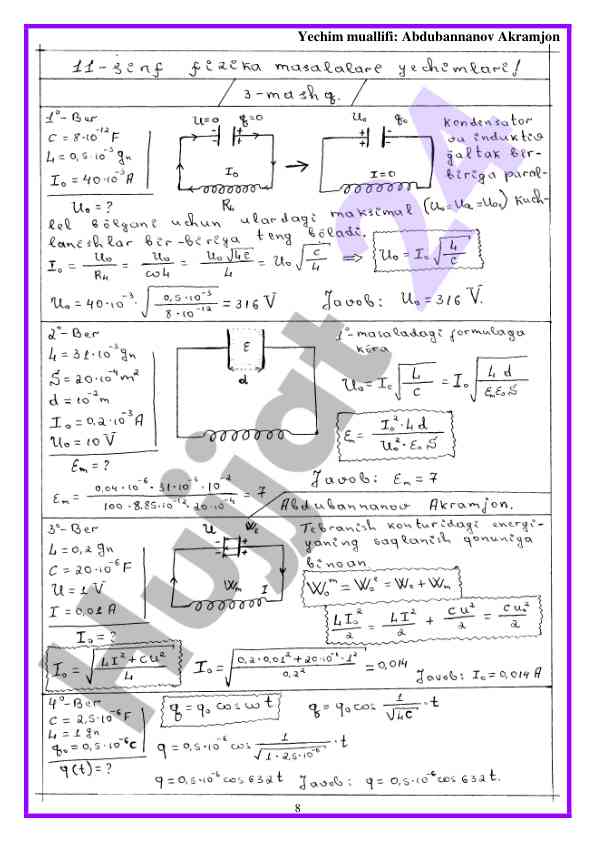 Yechim muallifi: Abdubannanov Akramjon
11-sinf fizika masalalari yechimlari!
3-mashq.
1°-Ber
C = 8·10⁻¹² F
L = 0,5·10⁻³ gn
I₀ = 40·10⁻³ A
U₀ = ?
U=0 q=0
I₀
R_L
→
U₀ q₀
I=0
Kondensator
va induktiv
g'altak bir-
biriga paral-
lel bo'lgani uchun ulardagi maksimal (U₀=U_L=U_0c) kuch-
lanishlar bir-biriga teng bo'ladi.
I₀ = U₀/R_L = U₀/ωL = U₀√LC/L = U₀√(C/L) ⇒ U₀ = I₀√(L/C)
U₀ = 40·10⁻³·√(0,5·10⁻³/8·10⁻¹²) = 316 V Javob: U₀ = 316 V.
2°-Ber
L = 31·10⁻³ gn
S = 20·10⁻⁴ m²
d = 10⁻² m
I₀ = 0,2·10⁻³ A
U₀ = 10 V
ε_m = ?
ε
d
1°-masaladagi formulaga
ko'ra
U₀ = I₀√(L/C) = I₀√(L d/ε_m ε₀ S)
ε = I₀²·L d/U₀²·ε₀ S
ε_m = 0,04·10⁻⁶·31·10⁻³·10⁻²/100·8,85·10⁻¹²·20·10⁻⁴ = 7
Javob: ε_m = 7
Abdubannanov Akramjon.
3°-Ber
L = 0,2 gn
C = 20·10⁻⁶ F
U = 1 V
I = 0,01 A
I₀ = ?
U W_e
W_m I
Tebranish konturidagi energi-
yaning saqlanish qonuniga
binoan
W₀ᵐ = W₀ᵉ = W_e + W_m
LI₀²/2 = LI²/2 + CU²/2 = CU₀²/2
I₀ = √(LI²+CU²/L) I₀ = √(0,2·0,01²+20·10⁻⁶·1²/0,2) = 0,014 Javob: I₀ = 0,014 A
4°-Ber
C = 2,5·10⁻⁶ F
L = 1 gn
q₀ = 0,5·10⁻⁶ C
q(t) = ?
q = q₀ cos ωt q = q₀ cos 1/√LC ·t
q = 0,5·10⁻⁶ cos 1/√(1·2,5·10⁻⁶) ·t
q = 0,5·10⁻⁶ cos 632t Javob: q = 0,5·10⁻⁶ cos 632t.
Hujjat 24
8